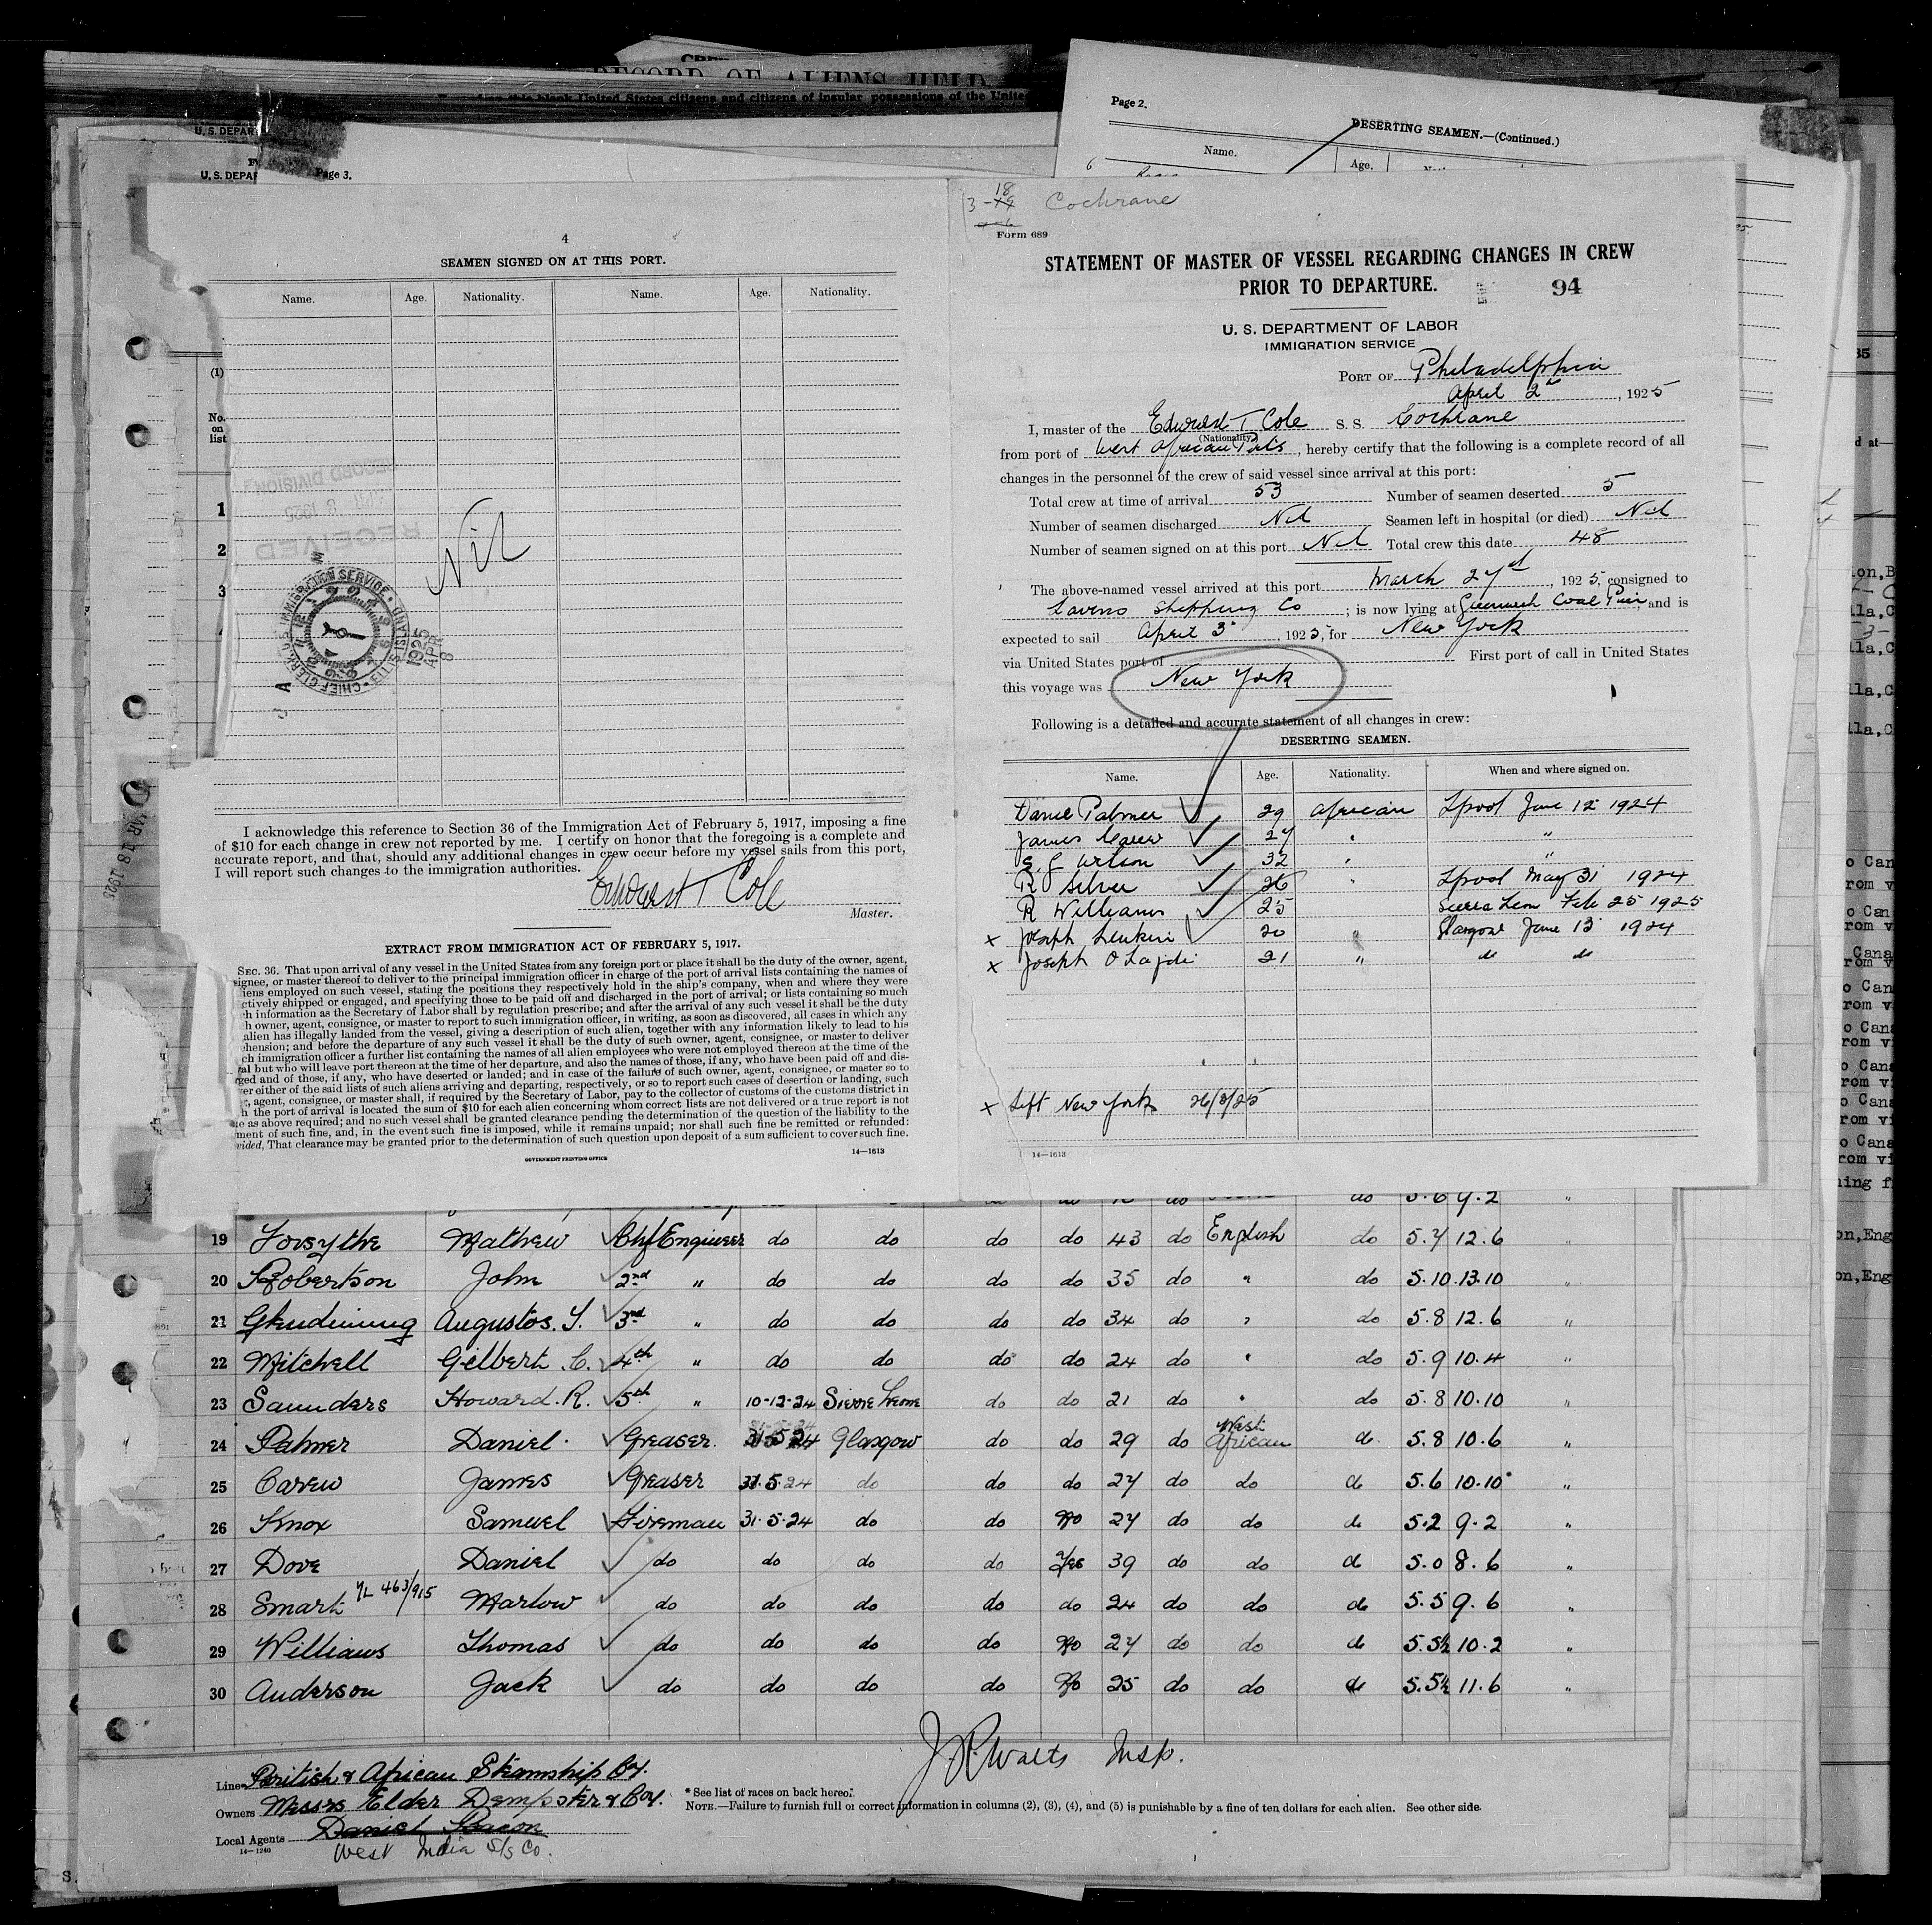 RECORD OF ALIENS HELD
blank United States citizens and citizens of insular possessions of the Unite
U. S. DEPAR
U. S. DEPAR
Page 3.
Page 2.
DESERTING SEAMEN.—(Continued.)
Name.
Age.
4
SEAMEN SIGNED ON AT THIS PORT.
Name. Age. Nationality. Name. Age. Nationality.
(1)
No.
on
list
1
2
3
RECORD DIVISION
RECEIVED
Nil
CHIEF CLERK, U.S. IMMIGRATION SERVICE · ELLIS ISLAND
1925
APR
8
MAR 18 1925
I acknowledge this reference to Section 36 of the Immigration Act of February 5, 1917, imposing a fine
of $10 for each change in crew not reported by me. I certify on honor that the foregoing is a complete and
accurate report, and that, should any additional changes in crew occur before my vessel sails from this port,
I will report such changes to the immigration authorities.
Edward T Cole
Master.
EXTRACT FROM IMMIGRATION ACT OF FEBRUARY 5, 1917.
SEC. 36. That upon arrival of any vessel in the United States from any foreign port or place it shall be the duty of the owner, agent,
signee, or master thereof to deliver to the principal immigration officer in charge of the port of arrival lists containing the names of
iens employed on such vessel, stating the positions they respectively hold in the ship's company, when and where they were
ctively shipped or engaged, and specifying those to be paid off and discharged in the port of arrival; or lists containing so much
h information as the Secretary of Labor shall by regulation prescribe; and after the arrival of any such vessel it shall be the duty
h owner, agent, consignee, or master to report to such immigration officer, in writing, as soon as discovered, all cases in which any
alien has illegally landed from the vessel, giving a description of such alien, together with any information likely to lead to his
hension; and before the departure of any such vessel it shall be the duty of such owner, agent, consignee, or master to deliver
ch immigration officer a further list containing the names of all alien employees who were not employed thereon at the time of the
al but who will leave port thereon at the time of her departure, and also the names of those, if any, who have been paid off and dis-
ged and of those, if any, who have deserted or landed; and in case of the failure of such owner, agent, consignee, or master so to
er either of the said lists of such aliens arriving and departing, respectively, or so to report such cases of desertion or landing, such
, agent, consignee, or master shall, if required by the Secretary of Labor, pay to the collector of customs of the customs district in
h the port of arrival is located the sum of $10 for each alien concerning whom correct lists are not delivered or a true report is not
e as above required; and no such vessel shall be granted clearance pending the determination of the question of the liability to the
ment of such fine, and, in the event such fine is imposed, while it remains unpaid; nor shall such fine be remitted or refunded:
vided, That clearance may be granted prior to the determination of such question upon deposit of a sum sufficient to cover such fine.
GOVERNMENT PRINTING OFFICE
14—1613
3-18 Cochrane
Form 689
STATEMENT OF MASTER OF VESSEL REGARDING CHANGES IN CREW
PRIOR TO DEPARTURE.
94
U. S. DEPARTMENT OF LABOR
IMMIGRATION SERVICE
PORT OF Philadelphia
April 2nd, 1925
I, master of the Edward T Cole S. S. Cochrane
(Nationality)
from port of West African Ports, hereby certify that the following is a complete record of all
changes in the personnel of the crew of said vessel since arrival at this port:
Total crew at time of arrival 53 Number of seamen deserted 5
Number of seamen discharged Nil Seamen left in hospital (or died) Nil
Number of seamen signed on at this port Nil Total crew this date 48
The above-named vessel arrived at this port March 27, 1925, consigned to
Lavino Shipping Co; is now lying at Greenwich Coal Pier and is
expected to sail April 3, 1925, for New York
via United States port of First port of call in United States
this voyage was New York
Following is a detailed and accurate statement of all changes in crew:
DESERTING SEAMEN.
Name. Age. Nationality. When and where signed on.
Daniel Palmer 29 African Lpool June 12 1924
James Carew 27 " "
S. J Wilson 32 " "
R Silver 26 " Lpool May 31 1924
R Williams 25 Sierra Leon Feb 25 1925
x Joseph 20 " Glasgow June 13 1924
x Joseph 21 " do do
x Left New York 26/3/25
14—1613
do 5.6 9.2 "
19 Forsythe Mathew Chf Engineer do do do do 43 do English do 5.7 12.6 "
20 Robertson John 2nd " do do do do 35 do " do 5.10 13.10 "
21 Glendinning Augustos. Y. 3rd " do do do do 34 do " do 5.8 12.6 "
22 Mitchell Gilbert. C. 4th " do do do do 24 do " do 5.9 10.4 "
23 Saunders Howard. R. 5th " 10-12-24 Sierre Leone do do 21 do " do 5.8 10.10 "
24 Palmer Daniel. Greaser. 31-5-24 Glasgow do do 29 do West African do 5.8 10.6 "
25 Carew James Greaser 31.5.24 do do do 27 do do do 5.6 10.10 "
26 Knox Samuel Fireman 31.5.24 do do No 27 do do do 5.2 9.2 "
27 Dove Daniel do do do do Yes 39 do do do 5.0 8.6 "
28 Smart YL 463/915 Marlow do do do do do 24 do do do 5.5 9.6 "
29 Williams Thomas do do do do No 27 do do do 5.5½ 10.2 "
30 Anderson Jack do do do do No 25 do do do 5.5½ 11.6 "
Line British & African Steamship Coy.
Owners Messrs Elder Dempster & Coy.
Local Agents Daniel Bacon
West India S/S Co.
14—1240
Insp.
* See list of races on back hereof.
NOTE.—Failure to furnish full or correct information in columns (2), (3), (4), and (5) is punishable by a fine of ten dollars for each alien. See other side.